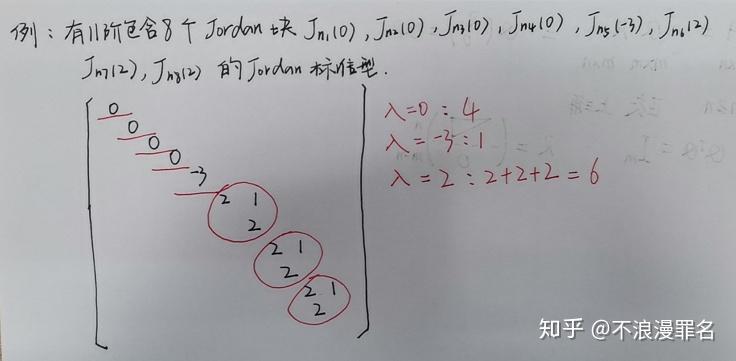 例：有11阶包含8个Jordan块 Jn₁(0), Jn₂(0), Jn₃(0), Jn₄(0), Jn₅(-3), Jn₆(2)
Jn₇(2), Jn₈(2) 的Jordan标准型.
0
0
0
0
-3
2 1
2
2 1
2
2 1
2
λ=0 : 4
λ=-3 : 1
λ=2 : 2+2+2=6
知乎 @不浪漫罪名